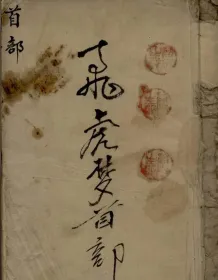 首部
飛虎梦首部